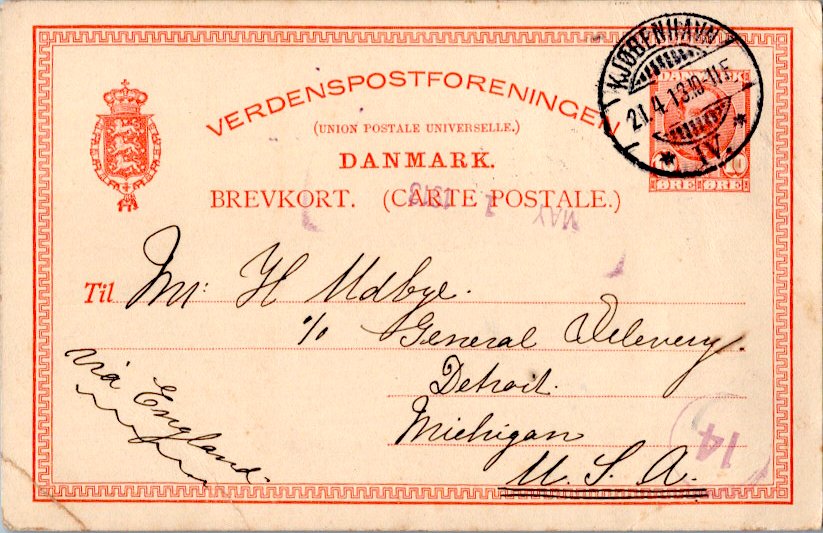 VERDENSPOSTFORENINGEN
(UNION POSTALE UNIVERSELLE.)
DANMARK.
BREVKORT. (CARTE POSTALE.)
KJØBENHAVN
21.4.13.10-11F
* IV. *
DANMARK
10 10
ØRE ØRE
MAY 1 1913
Til Mr. H Udbye.
c/o General Delevery.
Detroit.
Michigan
U. S. A.
via England.
14